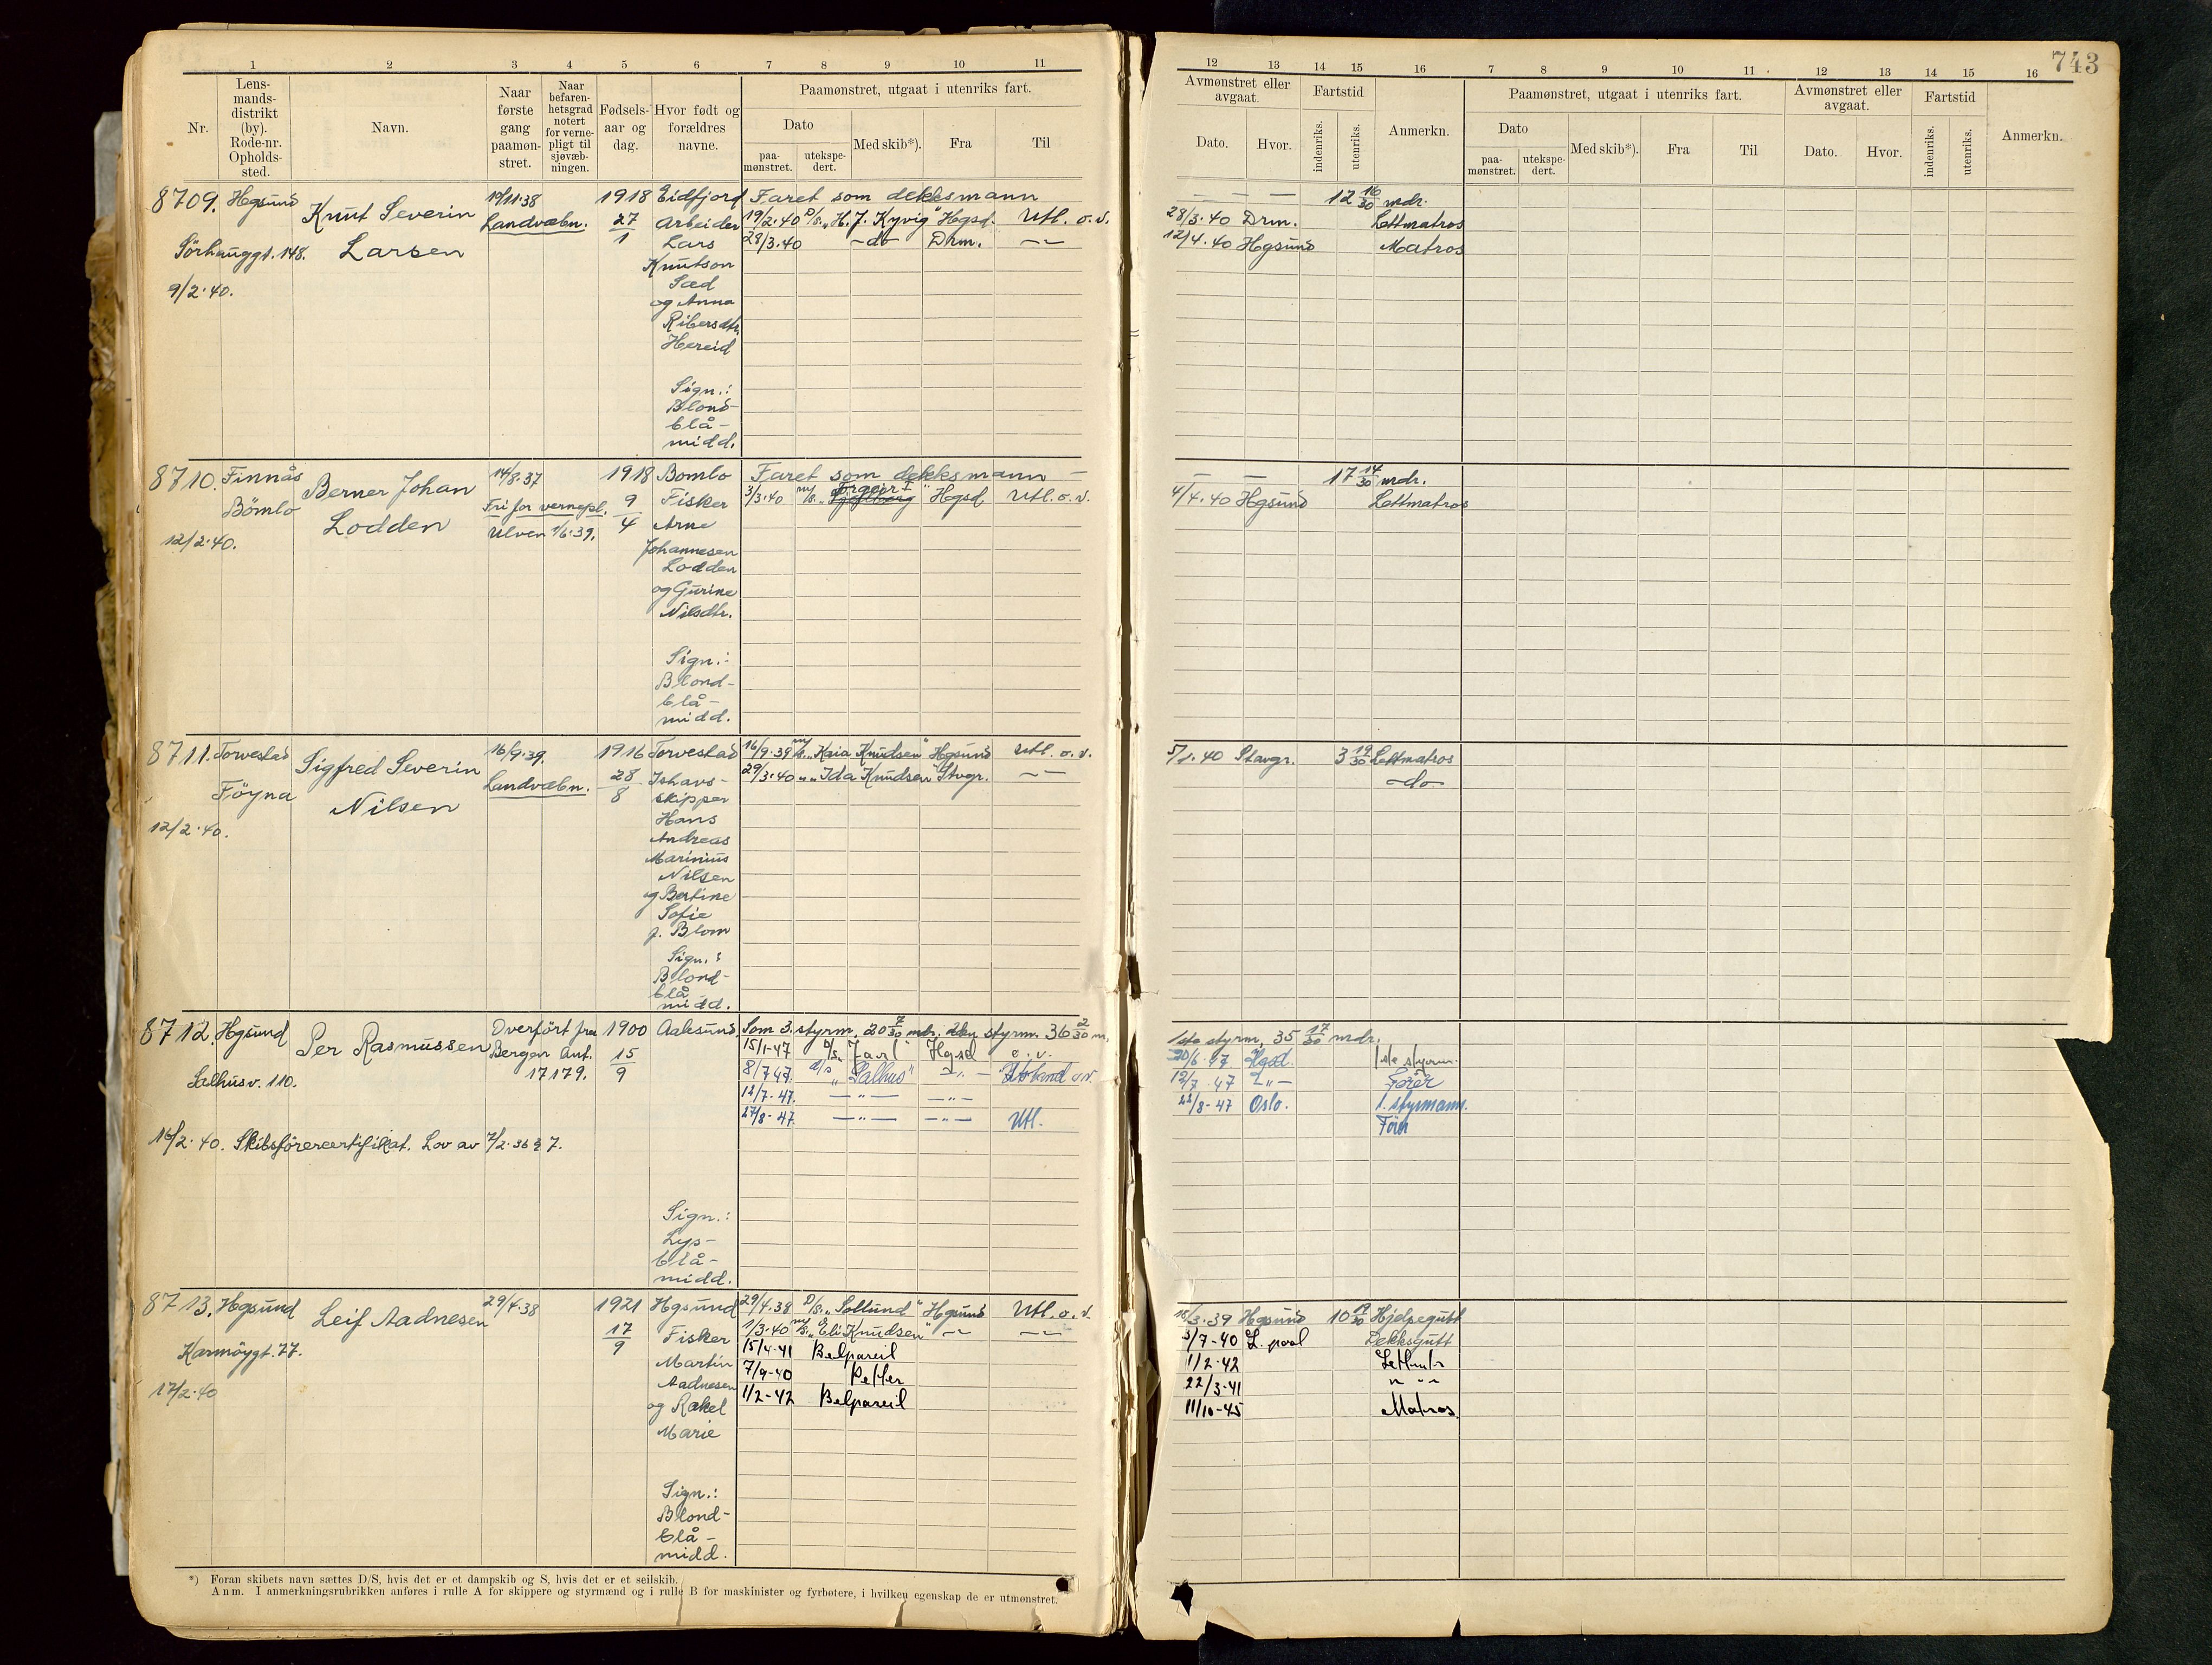 743
1 2 3 4 5 6 7 8 9 10 11
Nr.
Lens-
mands-
distrikt
(by).
Rode-nr.
Opholds-
sted.
Navn.
Naar
første
gang
paamøn-
stret.
Naar
befaren-
hetsgrad
notert
for verne-
pligt til
sjøvæb-
ningen.
Fødsels-
aar og
dag.
Hvor født og
forældres
navne.
Paamønstret, utgaat i utenriks fart.
Dato
paa-
mønstret.
utekspe-
dert.
Med skib*).
Fra
Til
12 13 14 15 16 7 8 9 10 11 12 13 14 15 16
Avmønstret eller
avgaat.
Dato.
Hvor.
Fartstid
indenriks.
utenriks.
Anmerkn.
Paamønstret, utgaat i utenriks fart.
Dato
paa-
mønstret.
utekspe-
dert.
Med skib*).
Fra
Til
Avmønstret eller
avgaat.
Dato.
Hvor.
Fartstid
indenriks.
utenriks.
Anmerkn.
8709. Hgsund
Sörhauggt. 148.
9/2.40.
Knut Severin
Larsen
Landvæbn.
1918
27
1
Eidfjord
Arbeider
Lars
Knutson
Sæd
og Anna
Hereid
Sign.:
Blond-
blå-
midd.
Faret som dekksmann
19/2.40 D/S. „H. J. Kyvig" Hgsd. Utl. o. v.
28/3.40 -do- Drm. -"-
— — — 12 16/30 mdr.
28/3.40 Drm. Lettmatros
12/4.40 Hgsund Matros
8710. Finnås
Bömlo
12/2.40.
Berner Johan
Lodden
14/8.37
Fri for vernepl.
Ulven 1/6.39.
1918
9
4
Bömlo
Fisker
Arne
Johannesen
Lodden
og Gurine
Nilsdtr.
Sign.:
Blond-
blå-
midd.
Faret som dekksmann —
3/3.40 m/s. Hgsd. Utl. o. v.
— — 17 14/30 mdr.
4/4.40 Hgsund Lettmatros
8711. Torvestad
Föyna
12/2.40.
Sigfred Severin
Nilsen
16/9.39.
Landvæbn.
1916
28
8
Torvestad
Ishavs-
skipper
Hans
Andreas
Marinius
Nilsen
og Bertine
Sofie
f. Blom
Sign.:
Blond-
blå
midd.
16/9.39 m/s. „Kaia Knudsen" Hgsund Utl. o. v.
29/3.40 " „Ida Knudsen" Stvgr. -"-
5/1.40 Stavgr. 3 19/30 Lettmatros
-do-
8712. Hgsund
Salhusv. 110.
16/2.40. Skibsförercertifikat. Lov av 7/2.36 § 7.
Per Rasmussen
Overfört fra
Bergen Ant.
17179.
1900
15
9
Aalesund
Sign.:
Lys-
blå-
midd.
Som 3. styrm. 20 7/30 mdr. 2den styrm. 36 2/30 m.
15/1-47 D/S. „Jarl" Hgsd e. v.
8/7 47. D/S „Salhus" -"-
12/7-47. -"- -"-
27/8-47 -"- -"- Utl.
1ste styrm. 35 17/30 mdr.
20/6.47 Hgsd. 1ste styrm.
12/7.47 -"- Förer
22/8-47 Oslo. 1. styrmann.
Förer
8713. Hgsund
Karmöygt. 77.
17/2.40
Leif Aadnesen
29/4.38
1921
17
9
Hgsund
Fisker
Martin
Aadnesen
og Rakel
Marie
Sign.:
Blond-
blå-
midd.
29/4.38 D/S. „Solsund" Hgsund Utl. o. v.
1/3.40 m/s. „Eli Knudsen" -"- -"-
15/4-41 Belpareil
7/9-40 Petter
1/2-42 Belpareil
18/3.39 Hgsund 10 19/30 Hjelpegutt
3/7-40 L. pool Dekksgutt
1/2-42 Lettmatr
22/3-41 " "
11/10-45 Matros.
*) Foran skibets navn sættes D/S, hvis det er et dampskib og S, hvis det er et seilskib.
Anm. I anmerkningsrubrikken anføres i rulle A for skippere og styrmænd og i rulle B for maskinister og fyrbøtere, i hvilken egenskap de er utmønstret.